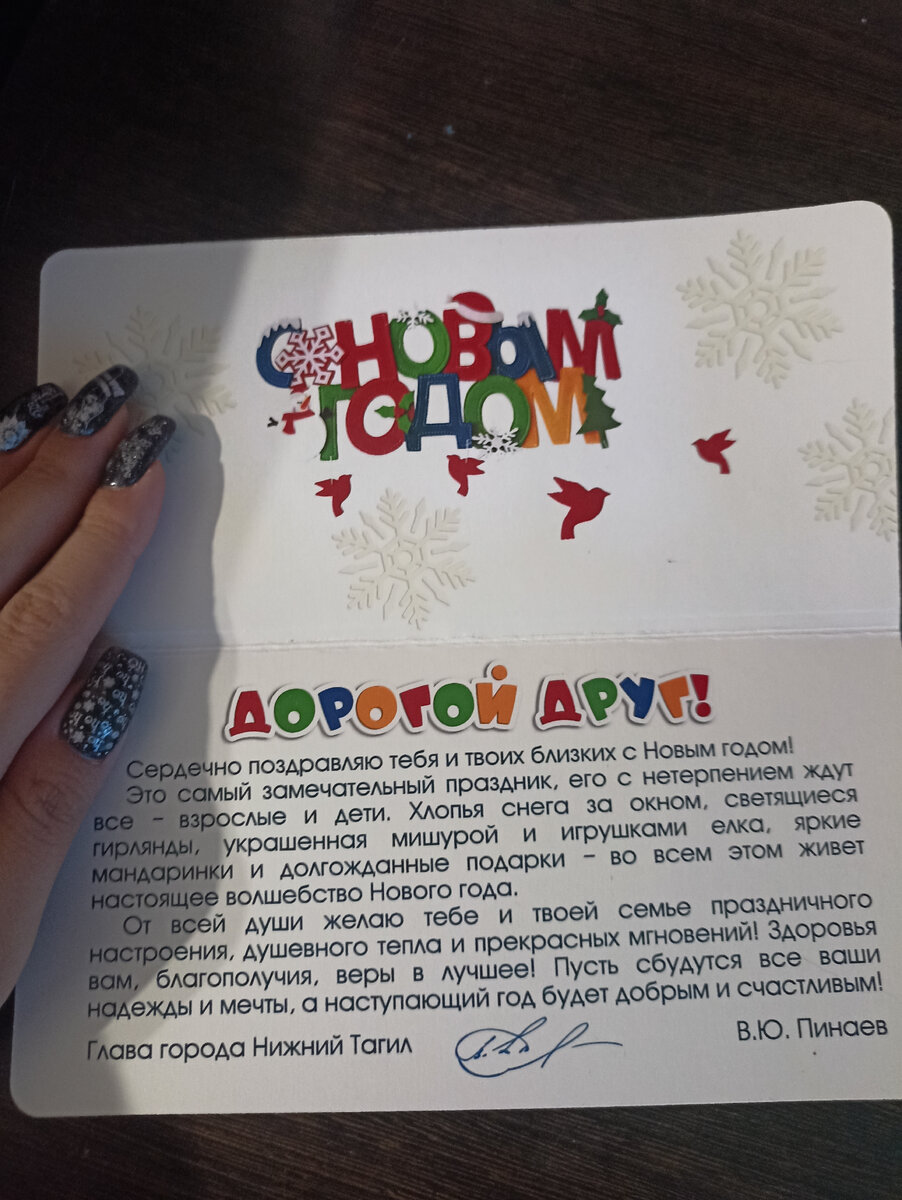 С НОВЫМ
ГОДОМ
ДОРОГОЙ ДРУГ!
Сердечно поздравляю тебя и твоих близких с Новым годом!
Это самый замечательный праздник, его с нетерпением ждут
все – взрослые и дети. Хлопья снега за окном, светящиеся
гирлянды, украшенная мишурой и игрушками елка, яркие
мандаринки и долгожданные подарки – во всем этом живет
настоящее волшебство Нового года.
От всей души желаю тебе и твоей семье праздничного
настроения, душевного тепла и прекрасных мгновений! Здоровья
вам, благополучия, веры в лучшее! Пусть сбудутся все ваши
надежды и мечты, а наступающий год будет добрым и счастливым!
Глава города Нижний Тагил В.Ю. Пинаев